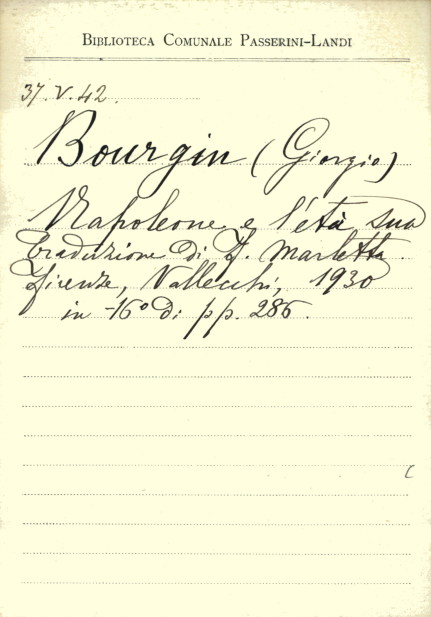 BIBLIOTECA COMUNALE PASSERINI-LANDI
37.V.42.
Bourgin (Giorgio)
Napoleone e l'età sua
traduzione di F. Marletta.
Firenze, Vallecchi, 1930
in -16° di pp. 286.